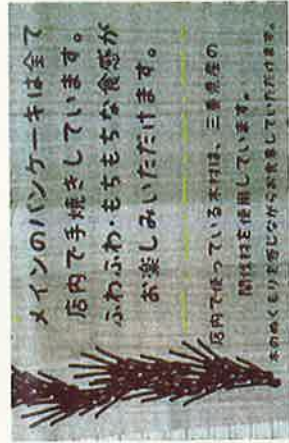 メインのパンケーキは全て
店内で手焼きしています。
ふわふわ・もちもちな食感が
お楽しみいただけます。
店内で使っている木材は、三重県産の
間伐材を使用しています。
木のぬくもりを感じながらお食事していただけます。